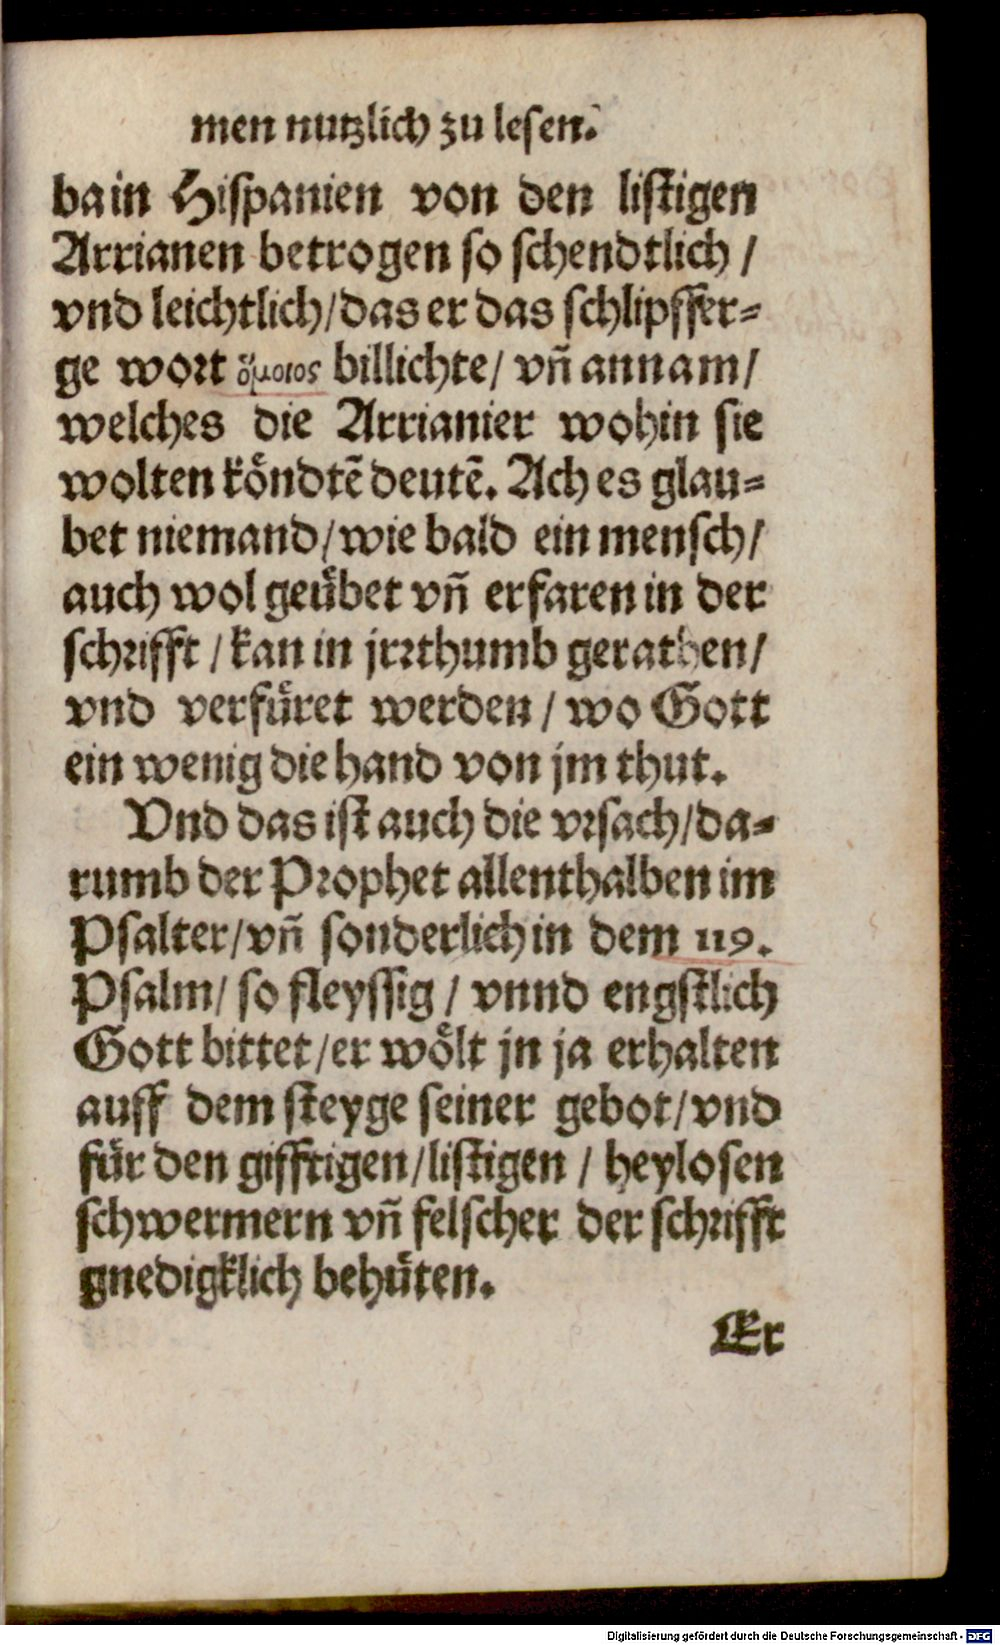 men nutzlich zu lesen.
ba in Hispanien von den listigen
Arrianen betrogen so schendtlich /
vnd leichtlich / das er das schlipffer=
ge wort ὅμοιος billichte / vñ annam /
welches die Arrianier wohin sie
wolten köndtē deutē. Ach es glau=
bet niemand / wie bald ein mensch /
auch wol geübet vñ erfaren in der
schrifft / kan in jrrthumb gerathen /
vnd verfüret werden / wo Gott
ein wenig die hand von jm thut.
Vnd das ist auch die vrsach / da=
rumb der Prophet allenthalben im
Psalter / vñ sonderlich in dem 119.
Psalm / so fleyssig / vnnd engstlich
Gott bittet / er wölt jn ja erhalten
auff dem steyge seiner gebot / vnd
für den gifftigen / listigen / heylosen
schwermern vñ felscher der schrifft
gnedigklich behüten.
Er
Digitalisierung gefördert durch die Deutsche Forschungsgemeinschaft - DFG